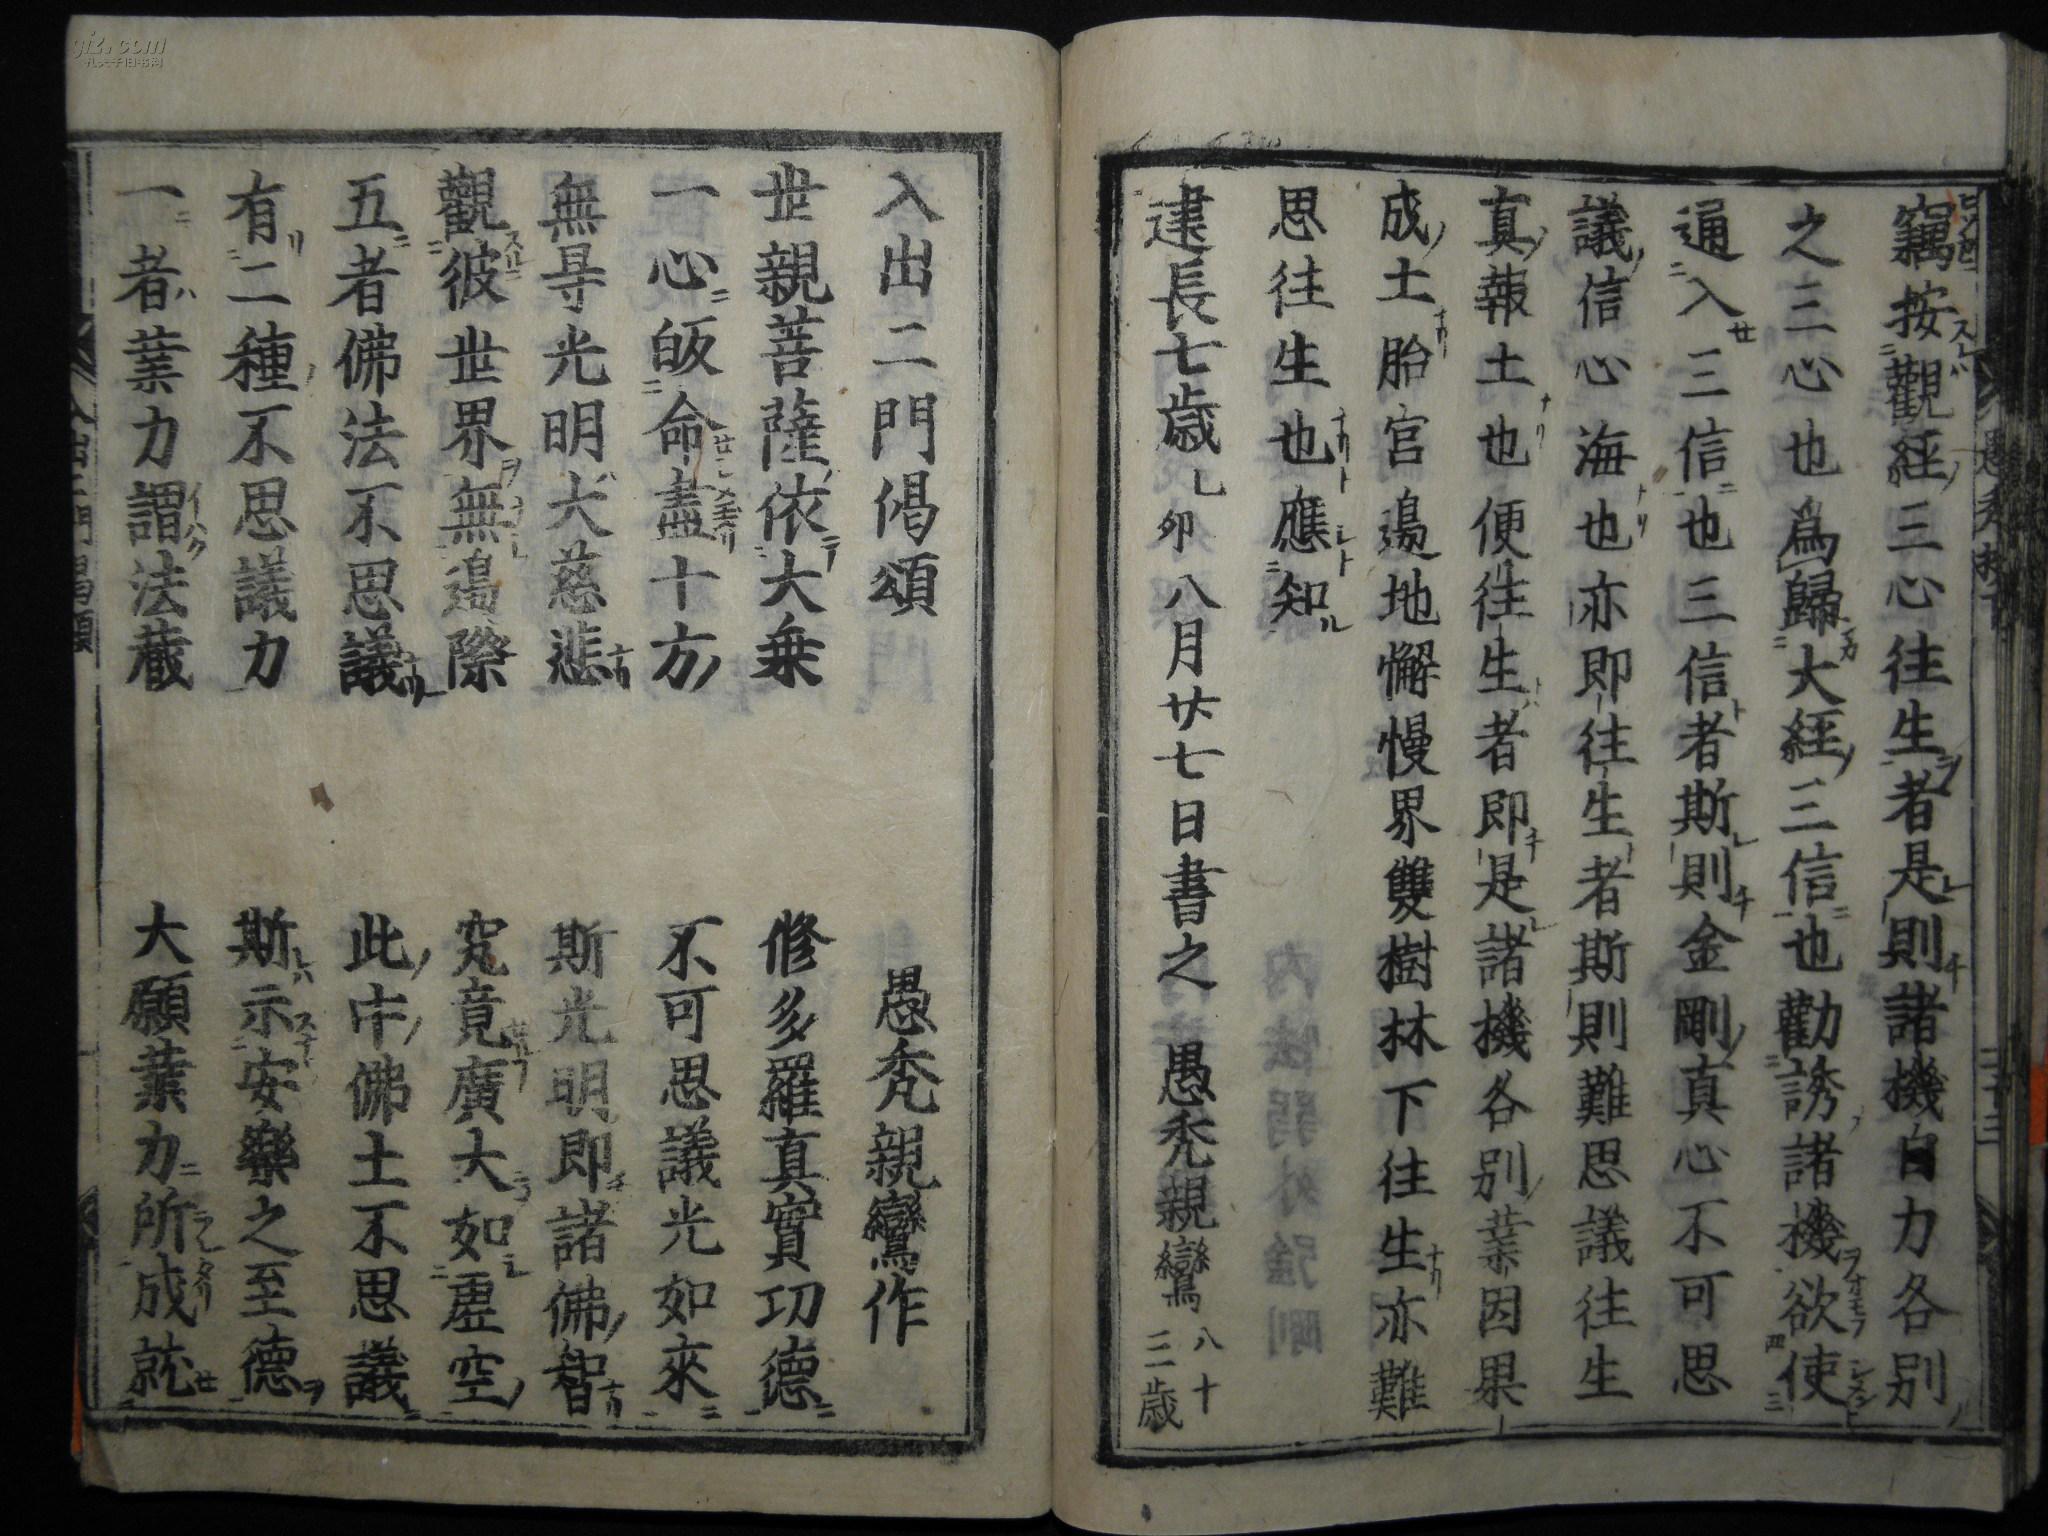 竊按觀經三心往生者是則諸機自力各別
之三心也爲歸大經三信也勸誘諸機欲使
通入三信也三信者斯則金剛真心不可思
議信心海也亦即往生者斯則難思議往生
真報土也便往生者即是諸機各別業因果
成土胎宮邊地懈慢界雙樹林下往生亦難
思往生也應知
建長七歳乙卯八月廿七日書之 愚禿親鸞八十三歳
入出二門偈頌
愚禿親鸞作
世親菩薩依大乘 修多羅真實功德
一心皈命盡十方 不可思議光如來
無㝵光明大慈悲 斯光明即諸佛智
觀彼世界無邊際 究竟廣大如虛空
五者佛法不思議 此中佛土不思議
有二種不思議力 斯示安樂之至德
一者業力謂法藏 大願業力所成就